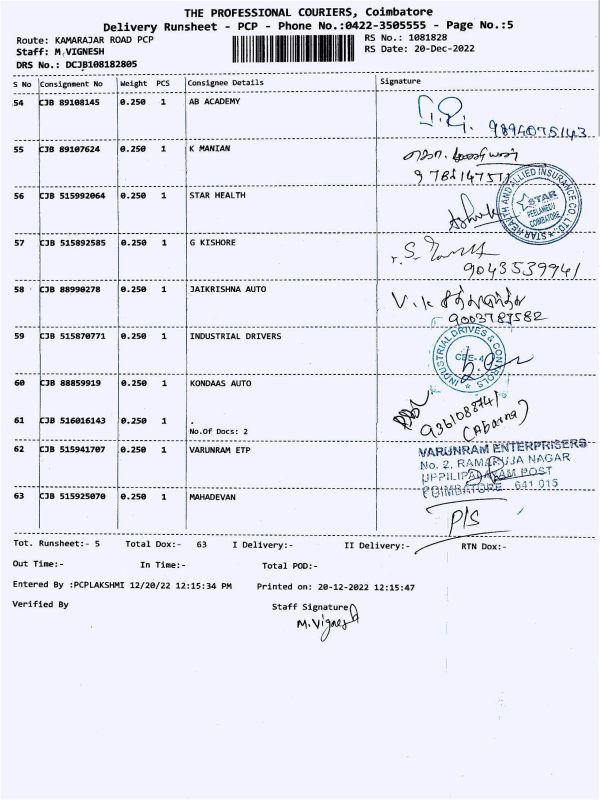 THE PROFESSIONAL COURIERS, Coimbatore
Delivery Runsheet - PCP - Phone No.:0422-3505555 - Page No.:5
Route: KAMARAJAR ROAD PCP RS No.: 1081828
Staff: M.VIGNESH RS Date: 20-Dec-2022
DRS No.: DCJB108182805
S No Consignment No Weight PCS Consignee Details Signature
54 CJB 89108145 0.250 1 AB ACADEMY
9894075143
55 CJB 89107624 0.250 1 K MANIAN
56 CJB 515992064 0.250 1 STAR HEALTH
STAR HEALTH AND ALLIED INSURANCE CO. LTD.
STAR
PEELAMEDU
COIMBATORE
57 CJB 515892585 0.250 1 G KISHORE
9043539941
58 CJB 88990278 0.250 1 JAIKRISHNA AUTO
V.K
9003787582
59 CJB 515870771 0.250 1 INDUSTRIAL DRIVERS
INDUSTRIAL DRIVES & CONTROLS
CBE-4
60 CJB 88859919 0.250 1 KONDAAS AUTO
61 CJB 516016143 0.250 1 .
No.Of Docs: 2
62 CJB 515941707 0.250 1 VARUNRAM ETP
VARUNRAM ENTERPRISERS
No. 2, RAMANUJA NAGAR
UPPILIPALAYAM POST
COIMBATORE 641 015
63 CJB 515925070 0.250 1 MAHADEVAN
P/S
Tot. Runsheet:- 5 Total Dox:- 63 I Delivery:- II Delivery:- RTN Dox:-
Out Time:- In Time:- Total POD:-
Entered By :PCPLAKSHMI 12/20/22 12:15:34 PM Printed on: 20-12-2022 12:15:47
Verified By Staff Signature
M.Vignesh